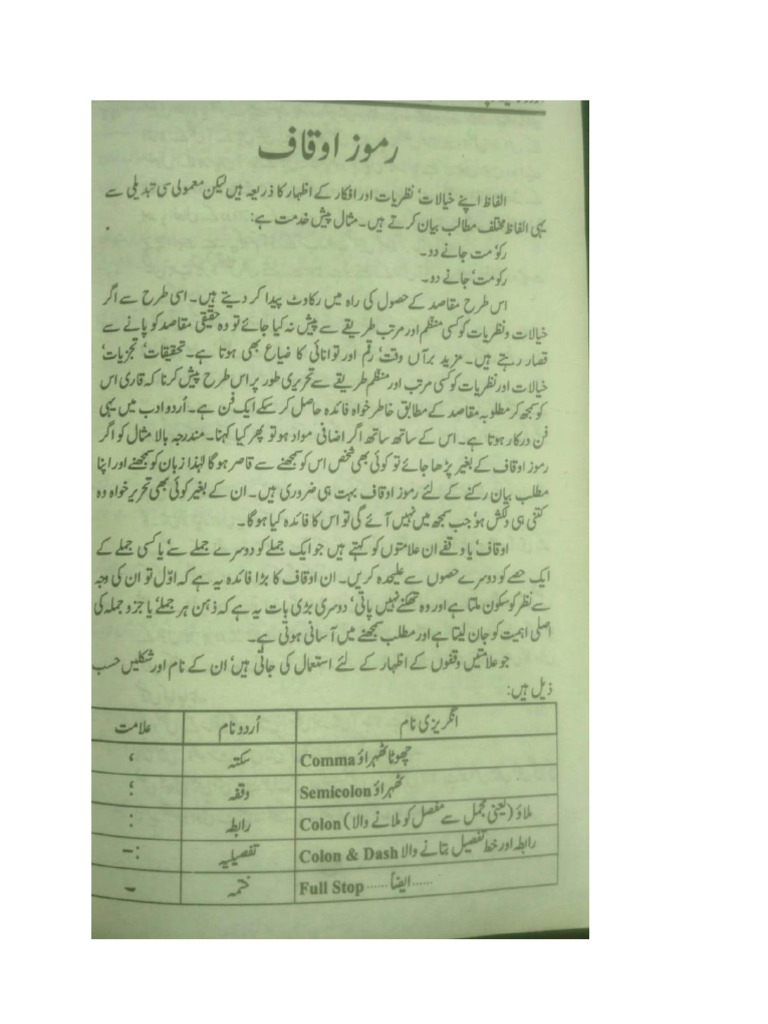 رموز اوقاف
الفاظ اپنے خیالات‘ نظریات اور افکار کے اظہار کا ذریعہ ہیں لیکن معمولی سی تبدیلی سے
یہی الفاظ مختلف مطالب بیان کرتے ہیں۔ مثال پیش خدمت ہے:
رکو‘ مت جانے دو۔
رکو مت‘ جانے دو۔
اس طرح مقاصد کے حصول کی راہ میں رکاوٹ پیدا کر دیتے ہیں۔ اسی طرح سے اگر
خیالات و نظریات کو کسی منظم اور مرتب طریقے سے پیش نہ کیا جائے تو وہ حقیقی مقاصد کو پانے سے
قصار رہتے ہیں۔ مزید برآں وقت‘ رقم اور توانائی کا ضیاع بھی ہوتا ہے۔ تحقیقات‘ تجزیات‘
خیالات اور نظریات کو کسی مرتب اور منظم طریقے سے تحریری طور پر اس طرح پیش کرنا کہ قاری اس
کو سمجھ کر مطلوبہ مقاصد کے مطابق خاطر خواہ فائدہ حاصل کر سکے ایک فن ہے۔ اُردو ادب میں یہی
فن درکار ہوتا ہے۔ اس کے ساتھ ساتھ اگر اضافی مواد ہو تو پھر کیا کہنا۔ مندرجہ بالا مثال کو اگر
رموز اوقاف کے بغیر پڑھا جائے تو کوئی بھی شخص اس کو سمجھنے سے قاصر ہوگا لہٰذا زبان کو سمجھنے اور اپنا
مطلب بیان رکنے کے لئے رموز اوقاف بہت ہی ضروری ہیں۔ ان کے بغیر کوئی بھی تحریر خواہ وہ
کتنی ہی دلکش ہو‘ جب سمجھ میں نہیں آئے گی تو اس کا فائدہ کیا ہوگا۔
اوقاف‘ یا وقفے ان علامتوں کو کہتے ہیں جو ایک جملے کو دوسرے جملے سے‘ یا کسی جملے کے
ایک حصے کو دوسرے حصوں سے علیحدہ کریں۔ ان اوقاف کا بڑا فائدہ یہ ہے کہ اوّل تو ان کی وجہ
سے نظر کو سکون ملتا ہے اور وہ تھکنے نہیں پاتی‘ دوسری بڑی بات یہ ہے کہ ذہن ہر جملے‘ یا جزو جملہ کی
اصلی اہمیت کو جان لیتا ہے اور مطلب سمجھنے میں آسانی ہوتی ہے۔
جو علامتیں وقفوں کے اظہار کے لئے استعمال کی جاتی ہیں‘ ان کے نام اور شکلیں حسب
ذیل ہیں:
انگریزی نام اُردو نام علامت
چھوٹا ٹھہراؤ Comma سکتہ ،
ٹھہراؤ Semicolon وقفہ ؛
ملاؤ (یعنی مجمل سے مفصل کو ملانے والا) Colon رابطہ :
رابطہ اور خط تفصیل بتانے والا Colon & Dash تفصیلیہ :-
......ایضاً...... Full Stop ختمہ ۔